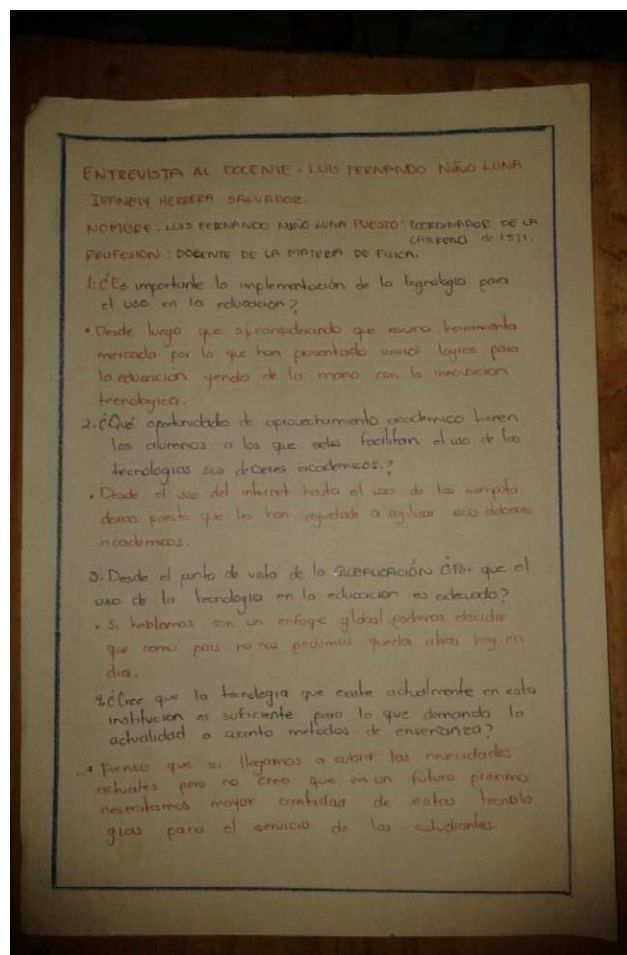 ENTREVISTA AL DOCENTE - LUIS FERNANDO NIÑO LUNA
IRANELY HERRERA SALVADOR.
NOMBRE: LUIS FERNANDO NIÑO LUNA PUESTO: COORDINADOR DE LA
CARRERA de ISTI.
PROFESIÓN: DOCENTE DE LA MATERIA DE FISICA.
1: ¿Es importante la implementación de la tegnologia para
el uso en la educacion?
• Desde luego que si, considerando que es una herramienta
mercada por lo que han presentado varios logros para
la educación yendo de la mano con la innovacion
tecnologica.
2. ¿Qué oportunidades de aprovechamiento academico tienen
los alumnos a los que se les facilitan el uso de las
tecnologias sus deberes academicos.?
• Desde el uso del internet hasta el uso de las computa
doras puesto que les han ayudado a agilizar sus deberes
academicos.
3. Desde el punto de vista de la GLOBALICACIÓN ¿Por que el
uso de la tecnologia en la educacion es adecuado?
• Si hablamos con un enfoque global podemos decidir
que como pais no nos podemos quedar atras hoy en
dia.
4. ¿Cree que la tecnologia que existe actualmente en esta
institucion es suficiente para lo que demanda la
actualidad a cuanto metodos de enseñanza?
• Pienso que si llegamos a cubrir las necesidades
actuales pero no creo que en un futuro proximo
nesecitamos mayor cantidad de estas tecnolo
gias para el servicio de los estudiantes.